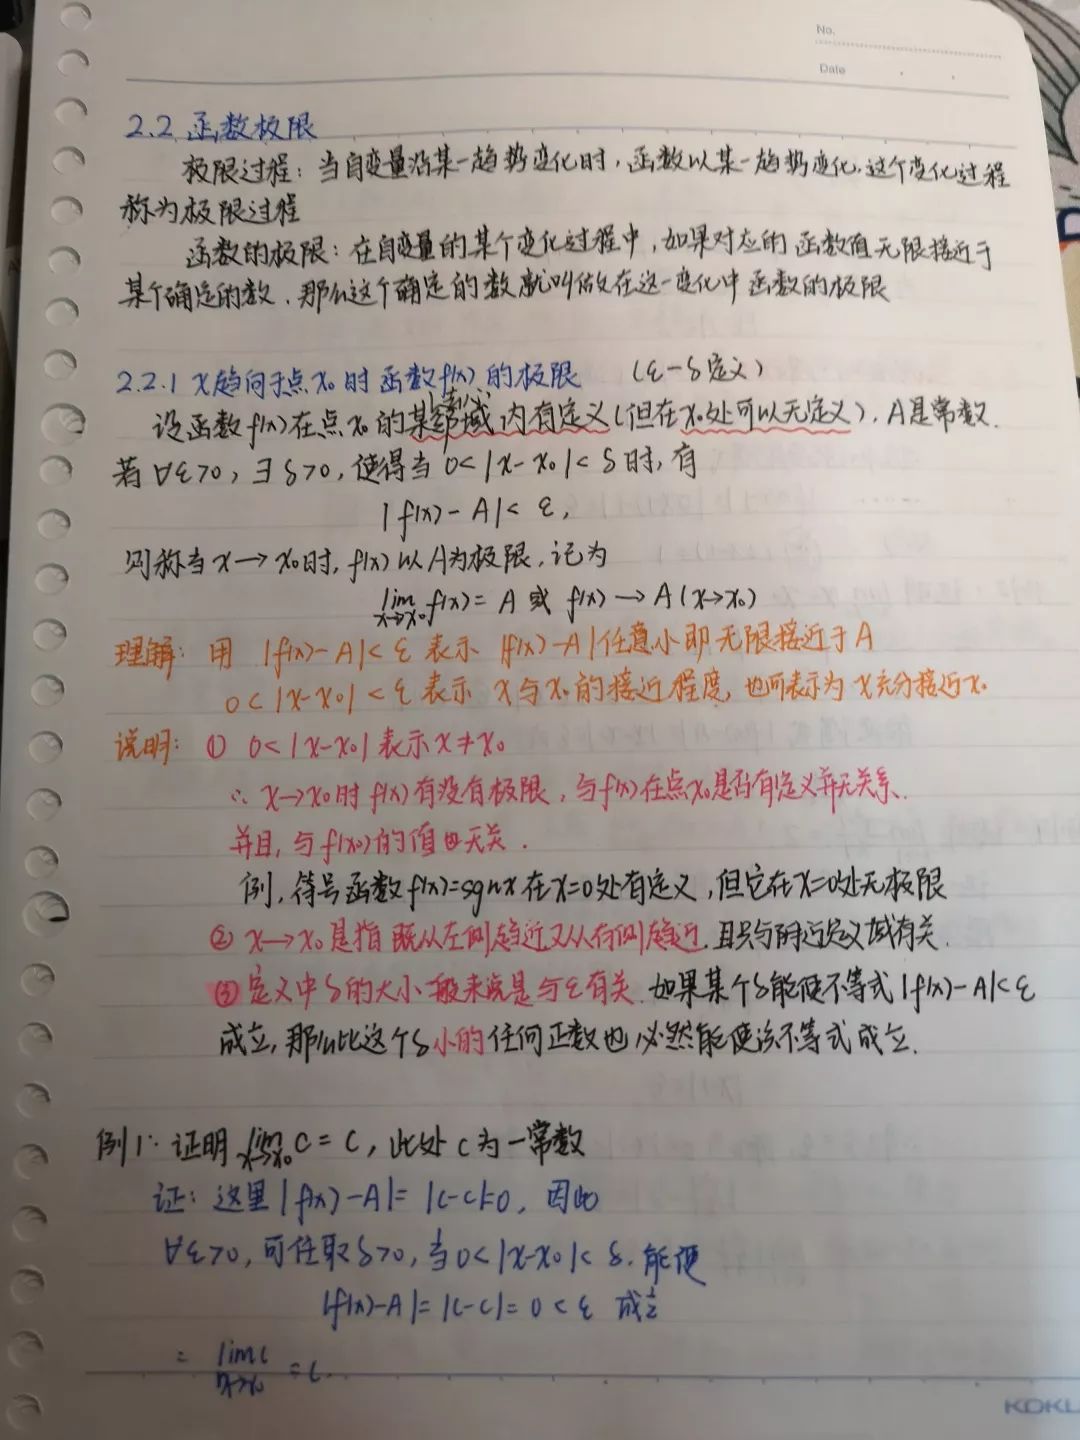 No.
Date
2.2 函数极限
极限过程：当自变量沿某一趋势变化时，函数以某一趋势变化，这个变化过程
称为极限过程
函数的极限：在自变量的某个变化过程中，如果对应的函数值无限接近于
某个确定的数，那么这个确定的数就叫做在这一变化中函数的极限
2.2.1 x趋向于点x₀时函数f(x)的极限 (ε-δ定义)
设函数f(x)在点x₀的某邻域内有定义(但在x₀处可以无定义)，A是常数.
若∀ε>0，∃δ>0，使得当0<|x-x₀|<δ时，有
|f(x)-A|<ε，
则称当x→x₀时，f(x)以A为极限，记为
lim x→x₀ f(x)=A 或 f(x)→A(x→x₀)
理解：用 |f(x)-A|<ε 表示 |f(x)-A|任意小即无限接近于A
0<|x-x₀|<ε 表示 x与x₀的接近程度，也可表示为x充分接近x₀
说明：① 0<|x-x₀|表示x≠x₀
∴ x→x₀时f(x)有没有极限，与f(x)在点x₀是否有定义并无关系.
并且，与f(x₀)的值也无关.
例，符号函数f(x)=sgnx在x=0处有定义，但它在x=0处无极限
② x→x₀是指既从左侧趋近又从右侧趋近，且只与附近定义域有关.
③ 定义中δ的大小一般来说是与ε有关.如果某个δ能使不等式|f(x)-A|<ε
成立，那么比这个δ小的任何正数也必然能使该不等式成立.
例1：证明 lim x→x₀ C=C，此处C为一常数
证：这里|f(x)-A|=|C-C|=0，因此
∀ε>0，可任取δ>0，当0<|x-x₀|<δ，能使
|f(x)-A|=|C-C|=0<ε 成立
= lim x→x₀ C =C.